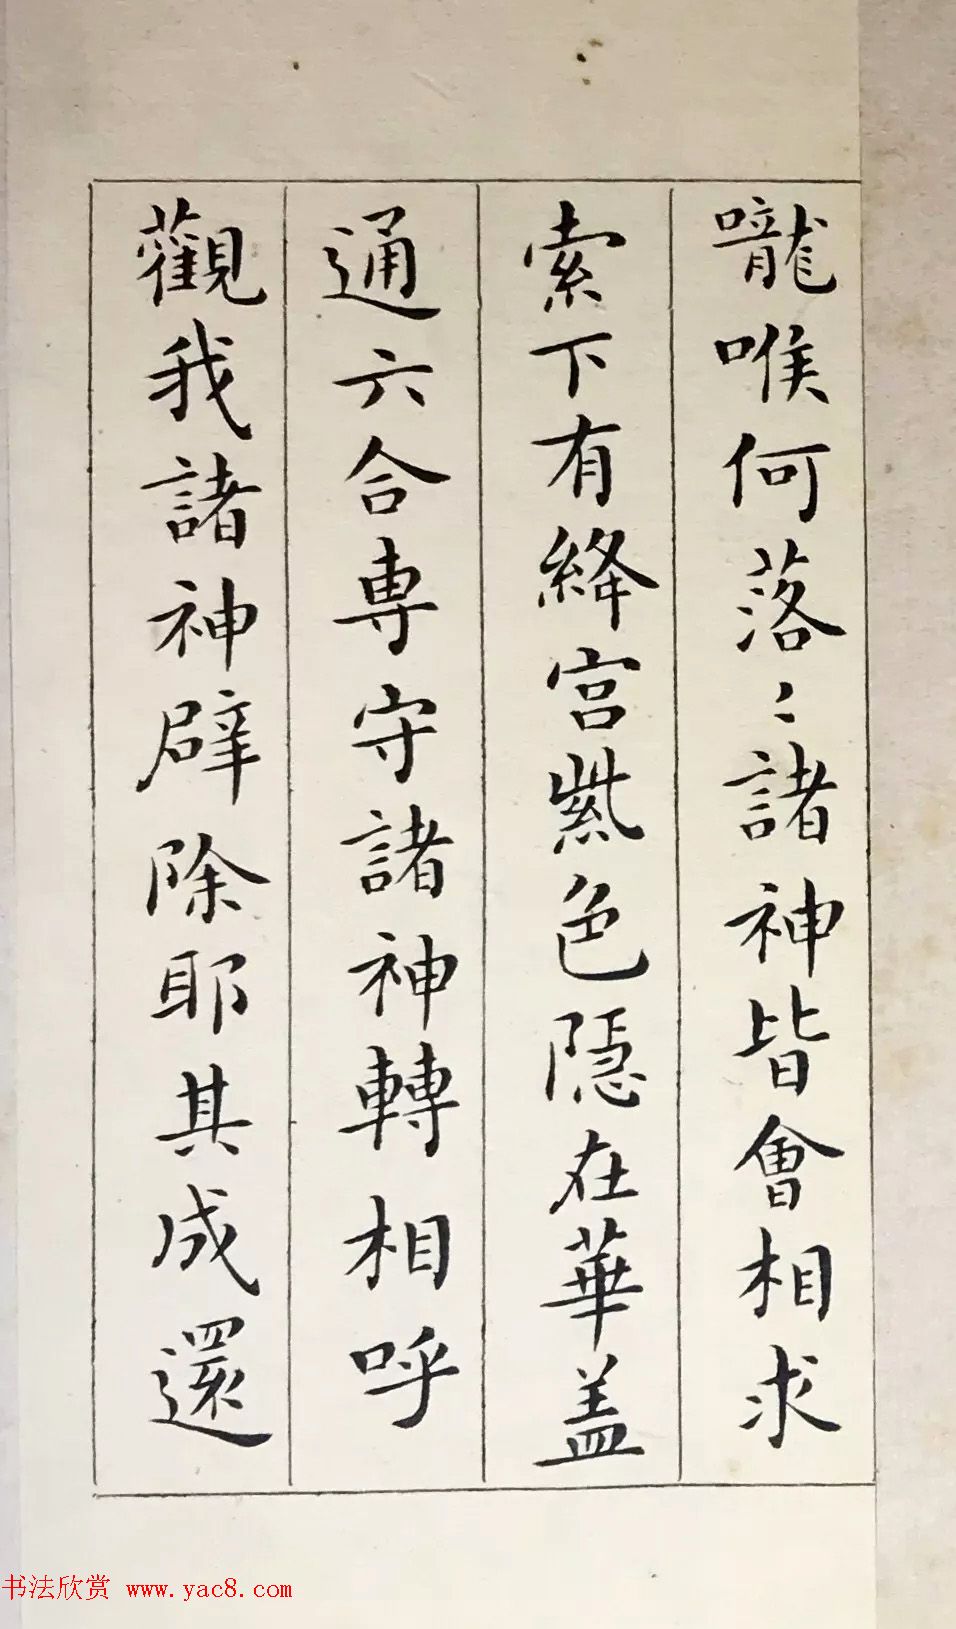 嚨喉何落〻諸神皆會相求
索下有絳宮紫色隱在華盖
通六合専守諸神轉相呼
觀我諸神辟除耶其成還
书法欣赏 www.yac8.com